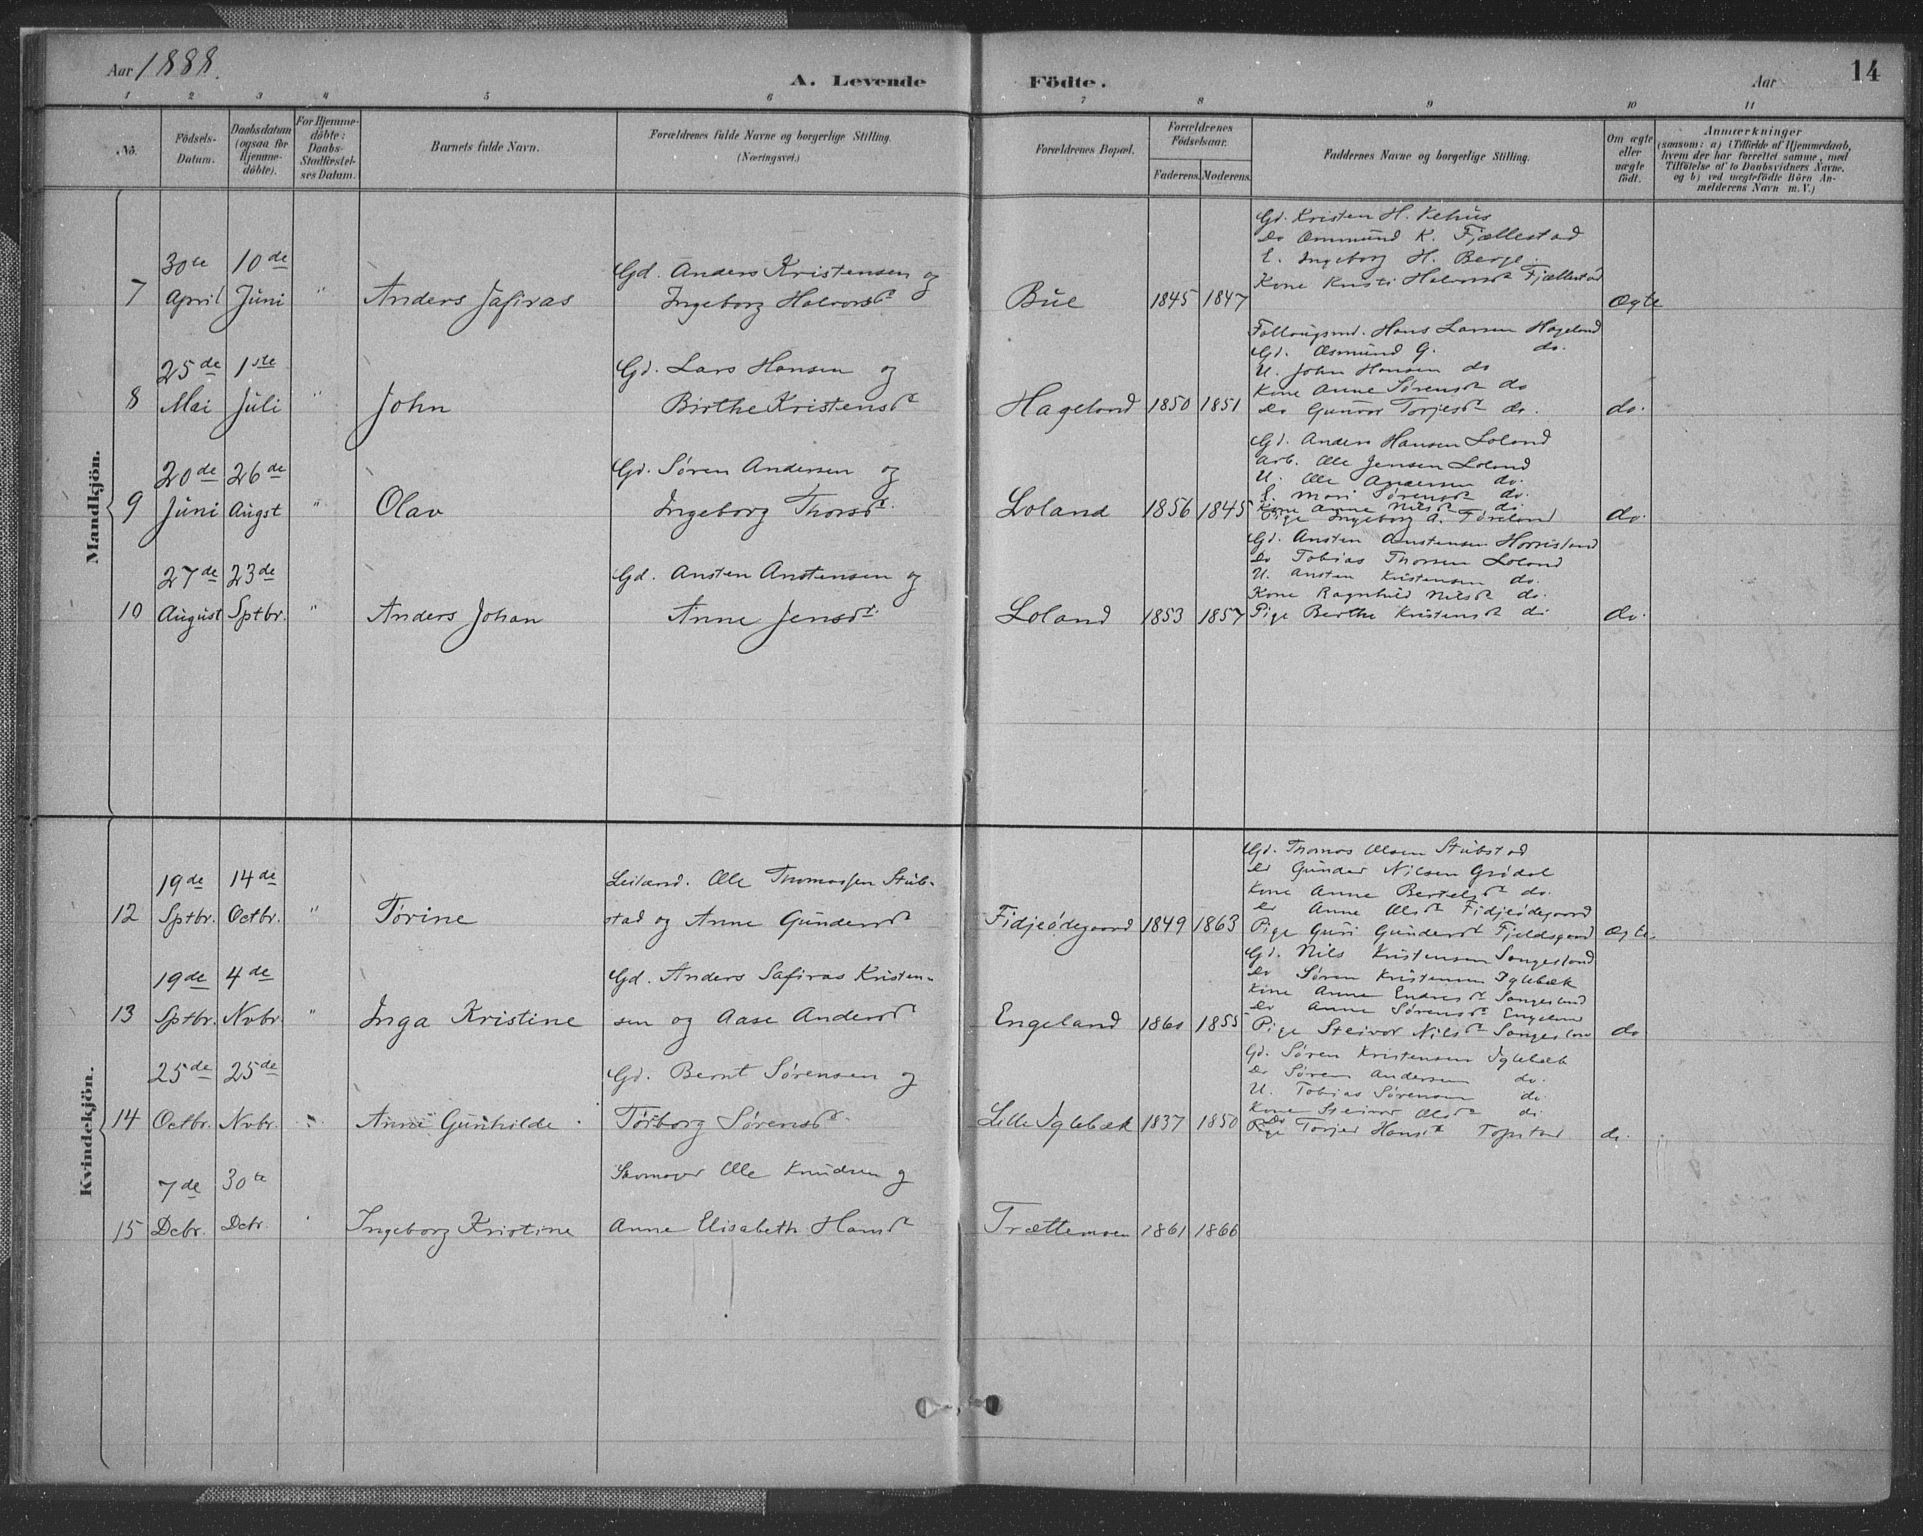 Aar 1888.
A. Levende Födte.
Aar
14
1 2 3 4 5 6 7 8 9 10 11
No.
Födsels-Datum.
Daabsdatum (ogsaa for Hjemme-döbte).
For Hjemme-döbte: Daabs-Stadfæstel-ses Datum.
Barnets fulde Navn.
Forældrenes fulde Navne og borgerlige Stilling.
(Næringsvei.)
Forældrenes Bopæl.
Forældrenes Födselsaar.
Faderens. Moderens.
Faddernes Navne og borgerlige Stilling.
Om ægte eller uægte födt.
Anmærkninger
(saasom: a) i Tilfælde af Hjemmedaab,
hvem der har forrettet samme, med
Tilföielse af to Daabsvidners Navne.
og b) ved uægtefödte Börn An-
melderens Navn m. V.)
Mandkjön.
7 30te April 10de Juni " Anders Safiras
Gd. Anders Kristensen og
Ingeborg Halvorsdt.
Bue 1845 1847
Gd. Kristen H. Vehus
do Ommund K. Fjællestad
E. Ingeborg H. Berge.
Kone Kristi Halvorsdt Fjællestad
Ægte
8 25de Mai 1ste Juli " John
Gd. Lars Hansen og
Birthe Kristensdt
Hageland 1850 1851
Foltougsmd. Hans Larsen Hageland
Gd. Asmund G. do.
U. John Hansen do
Kone Anne Sørensdt do
do Gunvor Torjesdt do.
do.
9 20de Juni 26de Augst " Olav
Gd. Søren Andersen og
Ingeborg Thorsdt.
Loland 1856 1845
Gd. Anders Hansen Loland
Arb. Ole Jensen Loland
U. Ole Andersen do.
E. Mari Sørensdt do.
Kone Anne Nilsdt do.
Pige Ingeborg A. Føreland
do.
10 27de August 23de Sptbr. " Anders Johan
Gd. Ansten Anstensen og
Anne Jensdt.
Loland 1853 1857
Gd. Ansten Anstensen
do Tobias Thorsen Loland
U. Ansten Kristensen do.
Kone Ragnhild Nilsdt do.
Pige Berthe Kristensdt do
do.
Kvindekjön.
12 19de Sptbr. 14de Octbr. " Tørine
Leilænd. Ole Thomassen Stub-
stad og Anne Gundersdt
Fidjeødegaard 1849 1863
Gd. Thomas Olsen Stubstad
do Gunder Nilsen Grødal
Kone Anne Bertelsdt do.
do Anne Olsdt Fidjeødegaard
Pige Guri Gundersdt Fjeldsgaard
Ægte.
13 19de Sptbr. 4de Nvbr. " Inga Kristine
Gd. Anders Safiras Kristen-
sen og Aase Andersdt
Engeland 1860 1855
Gd. Nils Kristensen Sangesland
do Søren Kristensen Iglebæk
Kone Anne Endresdt Sangesland
do Anne Sørensdt Engeland
Pige Steivor Nilsdt Sangesland
do
14 25de Octbr. 25de Nvbr. " Anne Gunhilde
Gd. Bernt Sørensen og
Torborg Sørensdt.
Lille Iglebæk 1837 1850
Gd. Søren Kristensen Iglebæk
do Søren Andersen do.
U. Tobias Sørensen do.
Kone Steivor Olsdt do
Pige Torjer Hansdt
do.
15 7de Dcbr. 30te Dcbr. Ingeborg Kristine
Ole Knudsen og
Anne Elisabeth Hansdt
Trættemoen 1861 1866